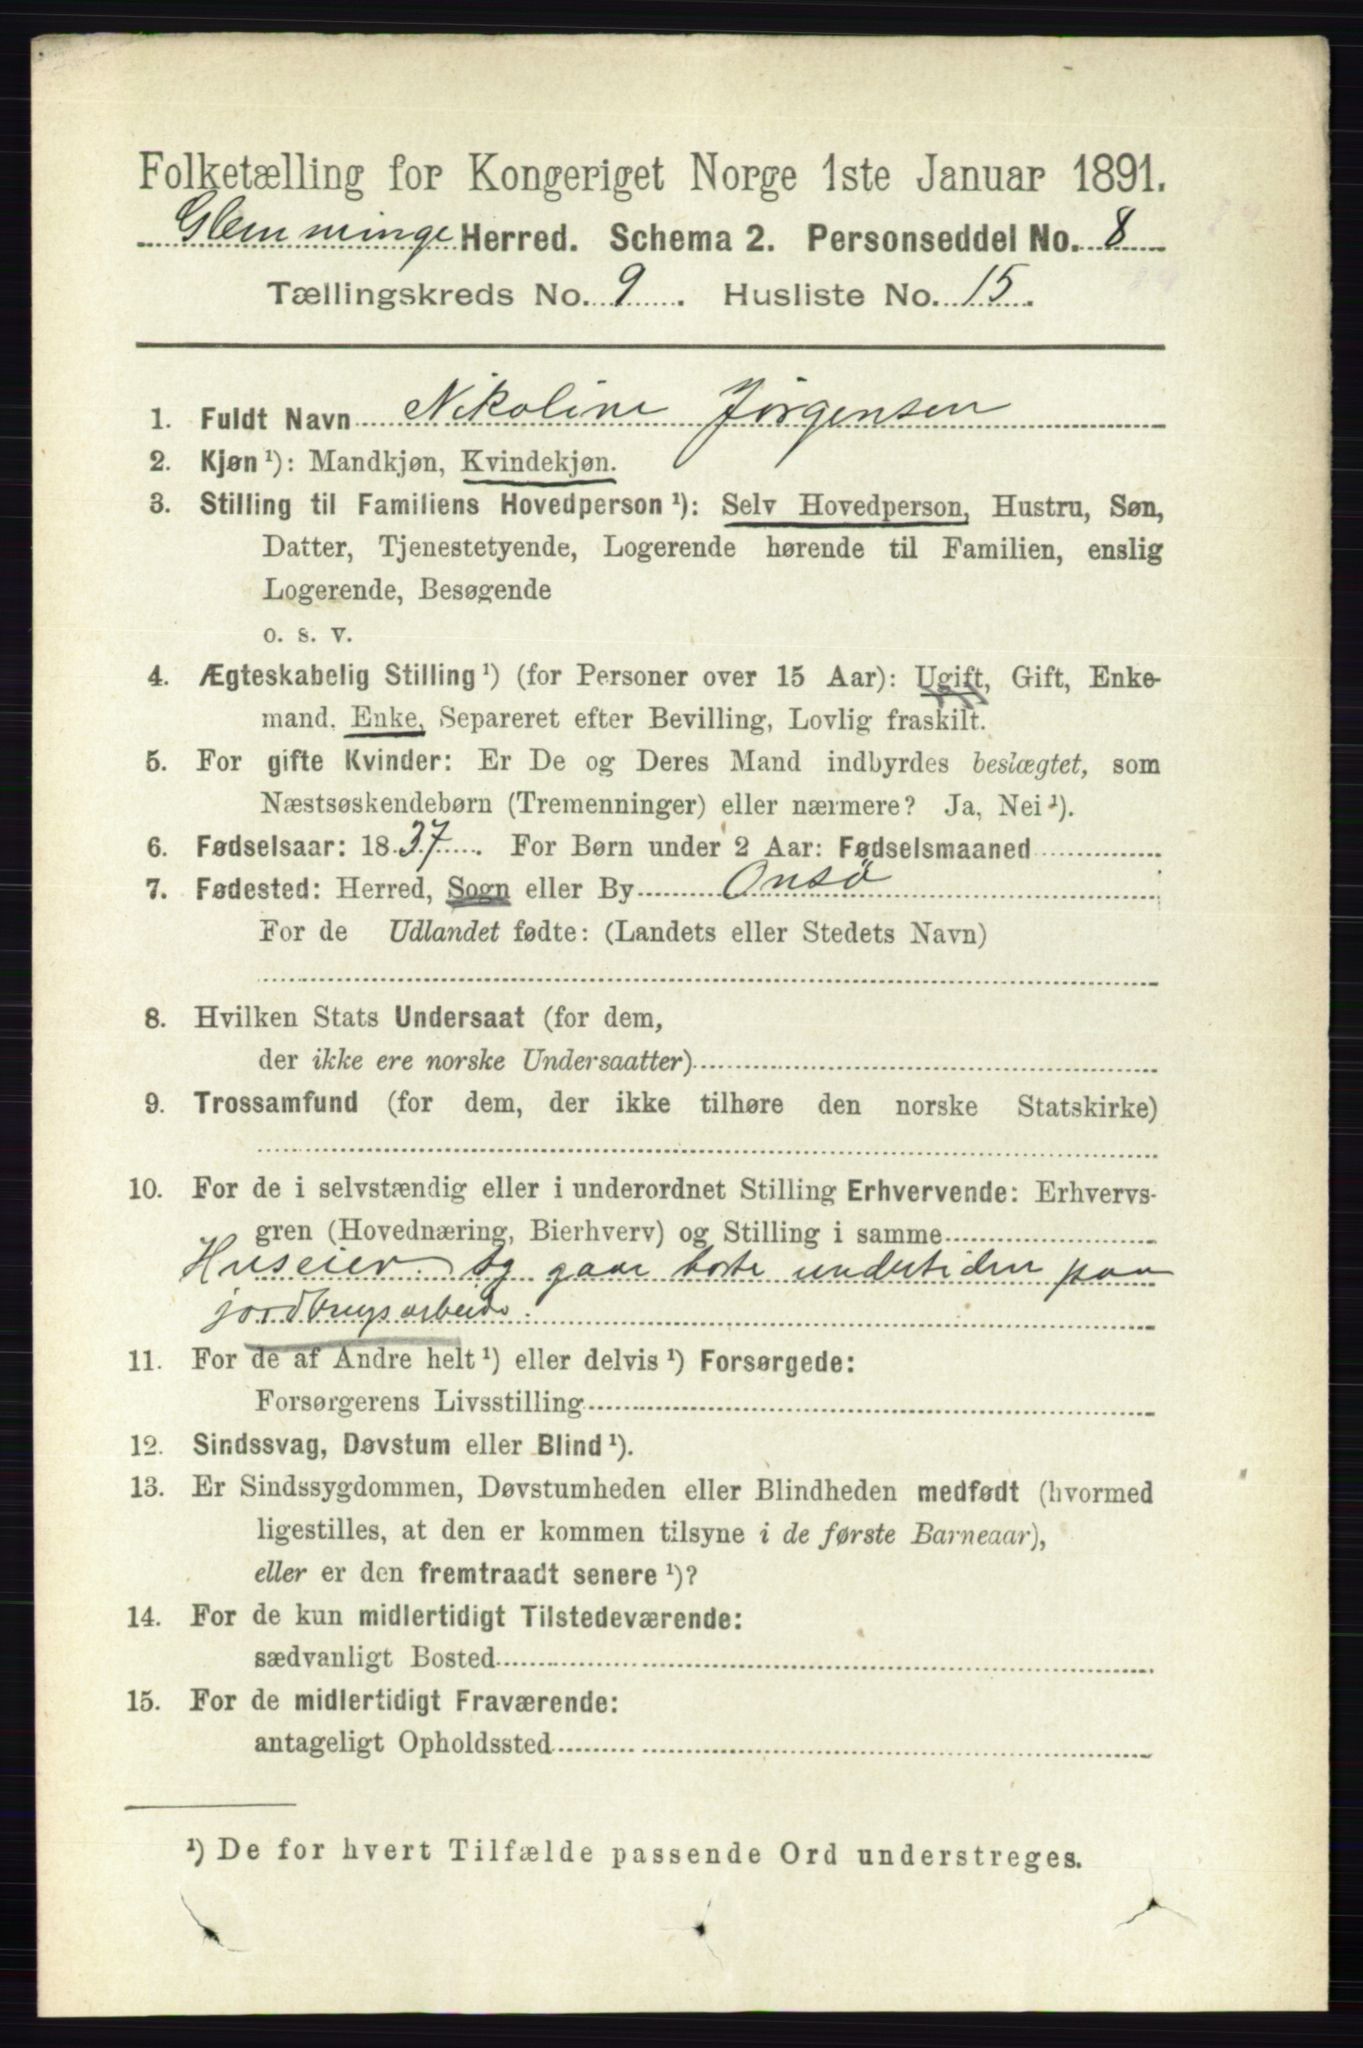 Folketælling for Kongeriget Norge 1ste Januar 1891.
Glemminge Herred. Schema 2. Personseddel No. 8
Tællingskreds No. 9. Husliste No. 15.
1. Fuldt Navn Nikoline Jørgensen
2. Kjøn ¹): Mandkjøn, Kvindekjøn.
3. Stilling til Familiens Hovedperson ¹): Selv Hovedperson, Hustru, Søn,
Datter, Tjenestetyende, Logerende hørende til Familien, enslig
Logerende, Besøgende
o. s. v.
4. Ægteskabelig Stilling ¹) (for Personer over 15 Aar): Ugift, Gift, Enke-
mand, Enke, Separeret efter Bevilling, Lovlig fraskilt.
5. For gifte Kvinder: Er De og Deres Mand indbyrdes beslægtet, som
Næstsøskendebørn (Tremenninger) eller nærmere? Ja, Nei ¹).
6. Fødselsaar: 1837. For Børn under 2 Aar: Fødselsmaaned
7. Fødested: Herred, Sogn eller By Onsö
For de Udlandet fødte: (Landets eller Stedets Navn)
8. Hvilken Stats Undersaat (for dem,
der ikke ere norske Undersaatter)
9. Trossamfund (for dem, der ikke tilhøre den norske Statskirke)
10. For de i selvstændig eller i underordnet Stilling Erhvervende: Erhvervs-
gren (Hovednæring, Bierhverv) og Stilling i samme
Huseier og gaar borte undertiden paa
jordbrugsarbeide.
11. For de af Andre helt ¹) eller delvis ¹) Forsørgede:
Forsørgerens Livsstilling
12. Sindssvag, Døvstum eller Blind ¹).
13. Er Sindssygdommen, Døvstumheden eller Blindheden medfødt (hvormed
ligestilles, at den er kommen tilsyne i de første Barneaar),
eller er den fremtraadt senere ¹)?
14. For de kun midlertidigt Tilstedeværende:
sædvanligt Bosted
15. For de midlertidigt Fraværende:
antageligt Opholdssted
¹) De for hvert Tilfælde passende Ord understreges.